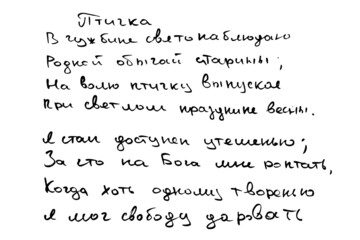 Птичка
В чужбине свято наблюдаю
Родной обычай старины;
На волю птичку выпускаю
При светлом празднике весны.
Я стал доступен утешенью;
За что на Бога мне роптать,
Когда хоть одному творенью
Я мог свободу даровать